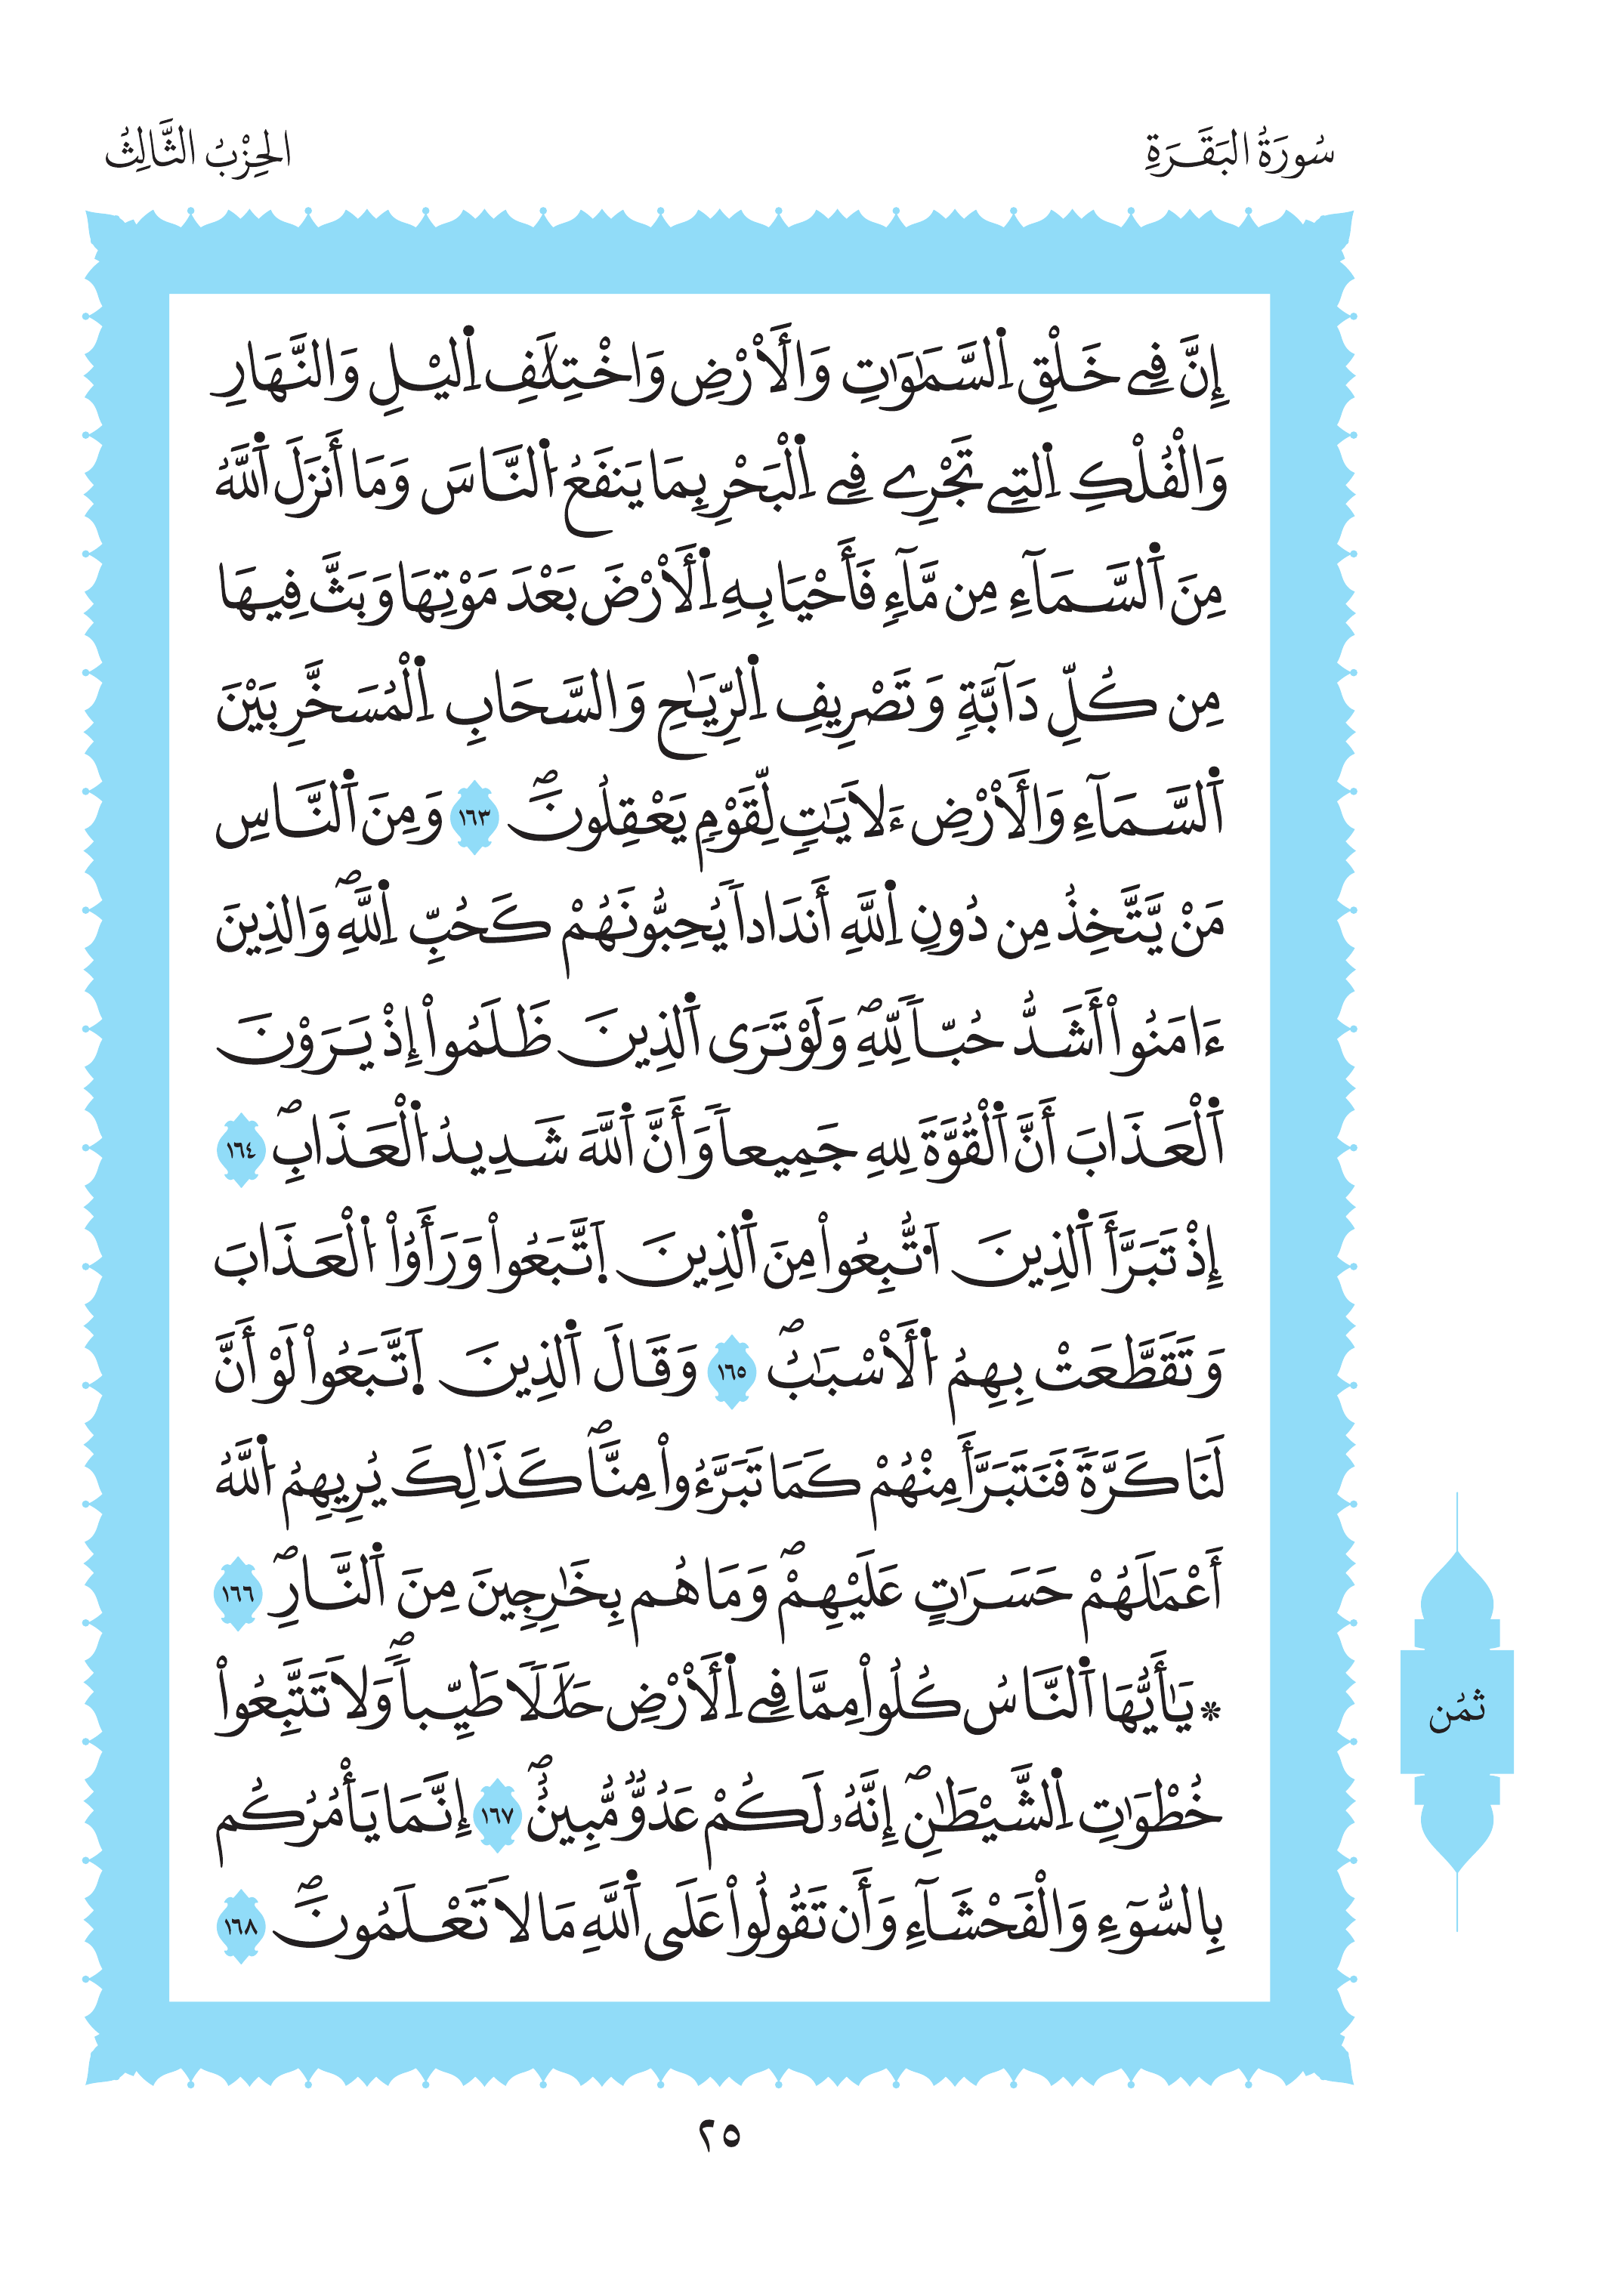 سُورَةُ البَقَرَةِ
الحِزْبُ الثَّالِثُ
إِنَّ فِے خَلْقِ اِ۬لسَّمَٰوَٰتِ وَالَارْضِ وَاخْتِلَٰفِ اِ۬ليْلِ وَالنَّهَارِ
وَالْفُلْكِ اِ۬لتِے تَجْرِے فِے اِ۬لْبَحْرِ بِمَا يَنفَعُ اُ۬لنَّاسَ وَمَا أَنزَلَ اَ۬للَّهُ
مِنَ اَ۬لسَّمَآءِ مِن مَّآءٖ فَأَحْيَا بِهِ اِ۬لَارْضَ بَعْدَ مَوْتِهَا وَبَثَّ فِيهَا
مِن كُلِّ دَآبَّةٖ وَتَصْرِيفِ اِ۬لرِّيَٰحِ وَالسَّحَابِ اِ۬لْمُسَخَّرِ بَيْنَ
اَ۬لسَّمَآءِ وَالَارْضِ ءَلَايَٰتٖ لِّقَوْمٖ يَعْقِلُونَۖ ١٦٣ وَمِنَ اَ۬لنَّاسِ
مَنْ يَّتَّخِذُ مِن دُونِ اِ۬للَّهِ أَندَاداٗ يُحِبُّونَهُمْ كَحُبِّ اِ۬للَّهِۖ وَالذِينَ
ءَامَنُواْ أَشَدُّ حُبّاٗ لِّلهِۖ وَلَوْ تَرَى اَ۬لذِينَ ظَلَمُواْ إِذْ يَرَوْنَ
اَ۬لْعَذَابَ أَنَّ اَ۬لْقُوَّةَ لِلهِ جَمِيعاٗ وَأَنَّ اَ۬للَّهَ شَدِيدُ اُ۬لْعَذَابِۖ ١٦٤
إِذْ تَبَرَّأَ اَ۬لذِينَ اَ۟تُّبِعُواْ مِنَ اَ۬لذِينَ اَ۪تَّبَعُواْ وَرَأَوُاْ اُ۬لْعَذَابَ
وَتَقَطَّعَتْ بِهِمُ اُ۬لَاسْبَٰبُۖ ١٦٥ وَقَالَ اَ۬لذِينَ اَ۪تَّبَعُواْ لَوْ أَنَّ
لَنَا كَرَّةٗ فَنَتَبَرَّأَ مِنْهُمْ كَمَا تَبَرَّءُواْ مِنَّاۖ كَذَٰلِكَ يُرِيهِمُ اُ۬للَّهُ
أَعْمَٰلَهُمْ حَسَرَٰتٍ عَلَيْهِمْۖ وَمَا هُم بِخَٰرِجِينَ مِنَ اَ۬لنَّارِۖ ١٦٦
* يَٰأَيُّهَا اَ۬لنَّاسُ كُلُواْ مِمَّا فِے اِ۬لَارْضِ حَلَٰلَا طَيِّباٗۖ وَلَا تَتَّبِعُواْ
خُطْوَٰتِ اِ۬لشَّيْطَٰنِۖ إِنَّهُۥ لَكُمْ عَدُوّٞ مُّبِينٌۖ ١٦٧ إِنَّمَا يَأْمُرُكُم
بِالسُّوٓءِ وَالْفَحْشَآءِ وَأَن تَقُولُواْ عَلَى اَ۬للَّهِ مَا لَا تَعْلَمُونَۖ ١٦٨
ثمُن
٢٥